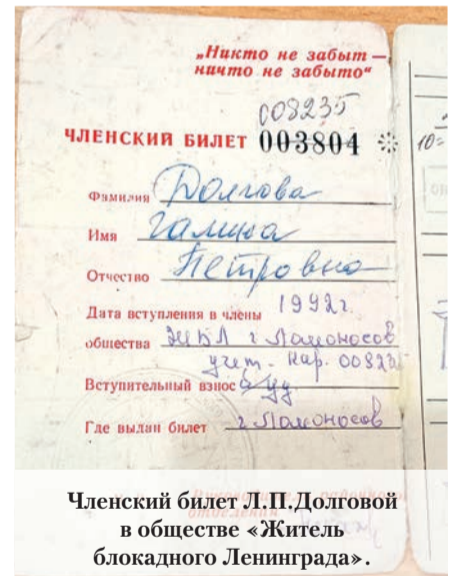 „Никто не забыт —
ничто не забыто“
008235
ЧЛЕНСКИЙ БИЛЕТ 003804
10=
Фамилия Долгова
Имя Галина
Отчество Петровна
Дата вступления в члены 1992г.
общества ЖБЛ г Ломоносов
учет. кар. 00823
Вступительный взнос
Где выдан билет г. Ломоносов
Членский билет Л.П.Долговой
в обществе «Житель
блокадного Ленинграда».